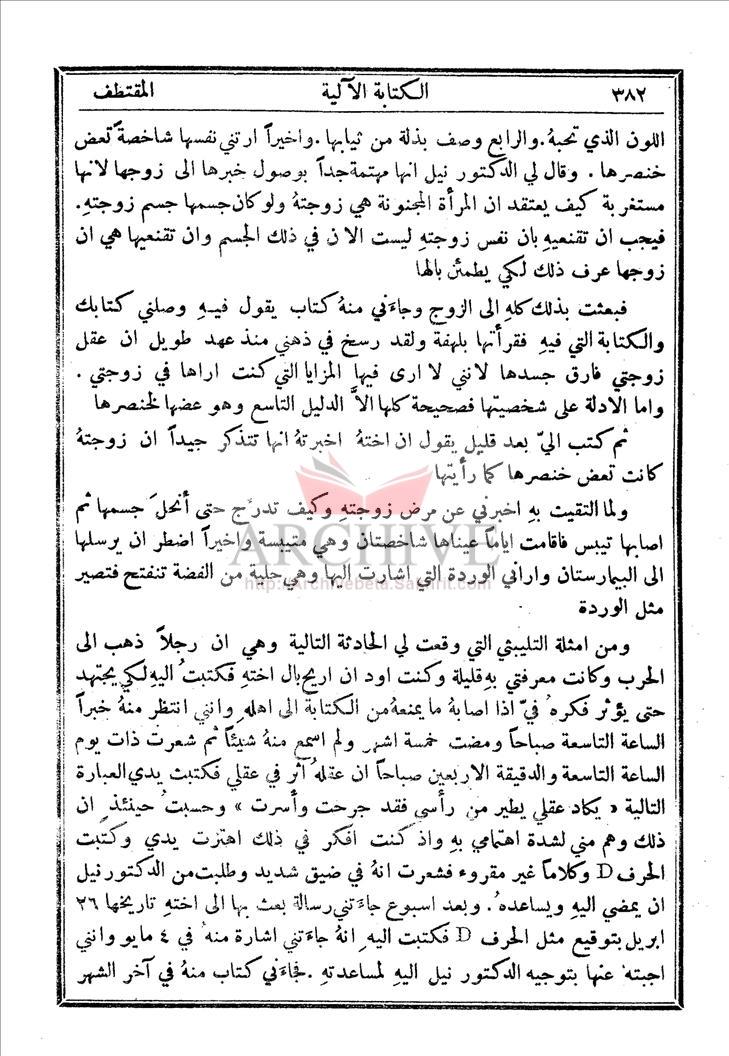 ٣٨٢ الكتابة الآلية المقتطف
اللون الذي تحبهُ. والرابع وصف بذلة من ثيابها. واخيراً ارتني نفسها شاخصةً تعض
خنصرها. وقال لي الدكتور نيل انها مهتمة جداً بوصول خبرها الى زوجها لانها
مستغربة كيف يعتقد ان المرأة المجنونة هي زوجتهُ ولو كان جسمها جسم زوجتهِ.
فيجب ان تقنعيهِ بان نفس زوجتهِ ليست الان في ذلك الجسم وان تقنعيها هي ان
زوجها عرف ذلك لكي يطمئن بالها
فبعثت بذلك كلهِ الى الزوج وجاءَني منهُ كتاب يقول فيهِ وصلني كتابك
والكتابة التي فيهِ فقرأتها بلهفة ولقد رسخ في ذهني منذ عهد طويل ان عقل
زوجتي فارق جسدها لانني لا ارى فيها المزايا التي كنت اراها في زوجتي.
واما الادلة على شخصيتها فصحيحة كلها الاَّ الدليل التاسع وهو عضها لخنصرها
ثم كتب اليّ بعد قليل يقول ان اختهُ اخبرتهُ انها تتذكر جيداً ان زوجتهُ
كانت تعض خنصرها كما رأيتها
ولما التقيت بهِ اخبرني عن مرض زوجتهِ وكيف تدرَّج حتى أنحلَ جسمها ثم
اصابها تيبس فاقامت اياماً عيناها شاخصتان وهي متيبسة واخيراً اضطر ان يرسلها
الى البيمارستان واراني الوردة التي اشارت اليها وهي حلية من الفضة تنفتح فتصير
مثل الوردة
ومن امثلة التليبثي التي وقعت لي الحادثة التالية وهي ان رجلاً ذهب الى
الحرب وكانت معرفتي بهِ قليلة وكنت اود ان اريح بال اختهِ فكتبتُ اليهِ لكي يجتهد
حتى يؤثر فكرهُ فيّ اذا اصابهُ ما يمنعهُ من الكتابة الى اهلهِ وانني انتظر منهُ خبراً
الساعة التاسعة صباحاً ومضت خمسة اشهر ولم اسمع منهُ شيئاً ثم شعرت ذات يوم
الساعة التاسعة والدقيقة الاربعين صباحاً ان عقلهُ آثر في عقلي فكتبت يدي العبارة
التالية « يكاد عقلي يطير من رأسي فقد جرحت وأُسرت » وحسبتُ حينئذٍ ان
ذلك وهم مني لشدة اهتمامي بهِ واذ كنت افكر في ذلك اهتزت يدي وكتبت
الحرف D وكلاماً غير مقروء فشعرت انهُ في ضيق شديد وطلبت من الدكتور نيل
ان يمضي اليهِ ويساعدهُ. وبعد اسبوع جاءَتني رسالة بعث بها الى اختهِ تاريخها ٢٦
ابريل بتوقيع مثل الحرف D فكتبت اليهِ انهُ جاءَتني اشارة منهُ في ٤ مايو وانني
اجبتهُ عنها بتوجيه الدكتور نيل اليهِ لمساعدتهِ. فجاءَني كتاب منهُ في آخر الشهر
ARCHIVE
http://Archivebeta.Sakhrit.com